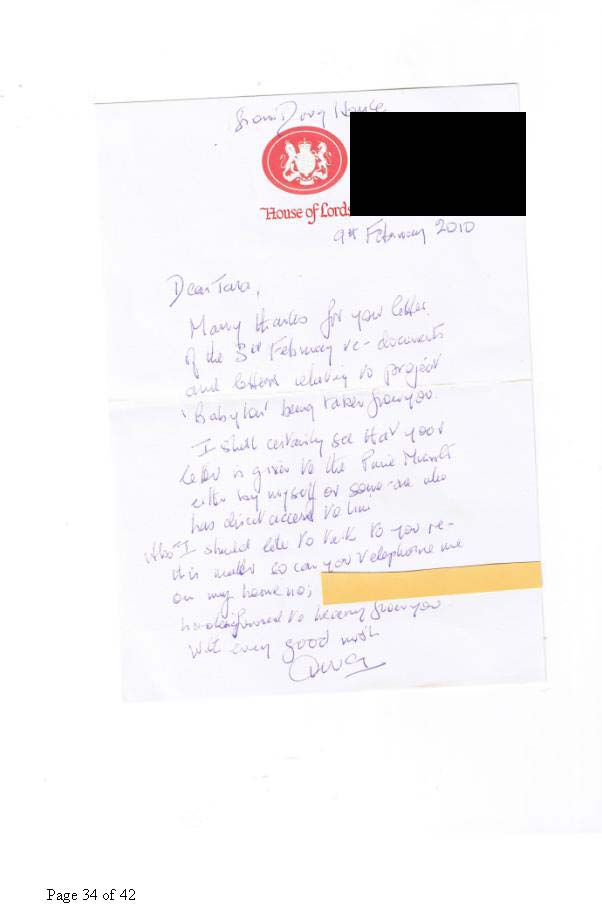 from: Doug Hoyle
House of Lords
9th February 2010
Dear Tara,
Many thanks for your letter
of the 3rd February re-documents
and letters relating to project
'Babylon' being taken from you.
I shall certainly see that your
letter is given to the Prime Minister
either by myself or some-one who
has direct access to him
Also I should like to talk to you re-
this matter so can you telephone me
on my home no;
looking forward to hearing from you
With every good wish
Doug
Page 34 of 42